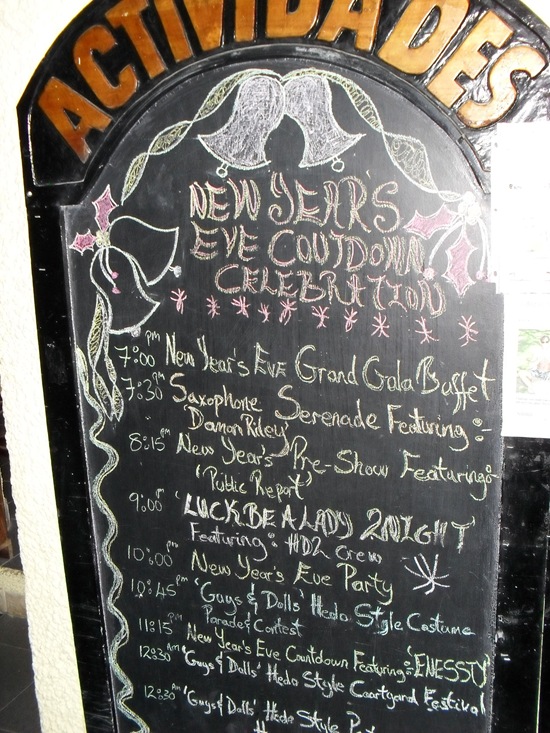 ACTIVIDADES
NEW YEAR'S
EVE COUTDOWN
CELEBRATION
7:00 pm New Year's Eve Grand Gala Buffet
7:30 pm Saxophone Serenade Featuring:
'Damon Riley'
8:15 pm New Year's Pre-Show Featuring:
'Public Report'
9:00 pm 'LUCK BE A LADY 2NIGHT'
Featuring: HD2 Crew
10:00 pm New Year's Eve Party
10:45 pm 'Guys & Dolls' Hedo Style Costume
Parade & Contest
11:15 pm New Year's Eve Countdown Featuring: 'ENESSTY'
12:30 AM 'Guys & Dolls' Hedo Style Courtyard Festival
12:30 AM 'Guys & Dolls' Hedo Style